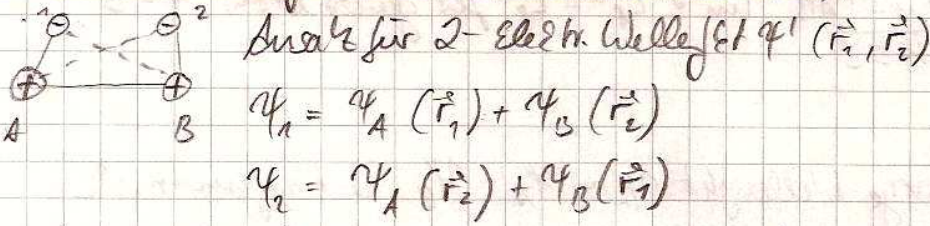 1 2
Ansatz für 2-Elektr. Wellenfkt ψ' (r⃗₁, r⃗₂)
ψ₁ = ψ_A (r⃗₁) + ψ_B (r⃗₂)
A B
ψ₂ = ψ_A (r⃗₂) + ψ_B (r⃗₁)